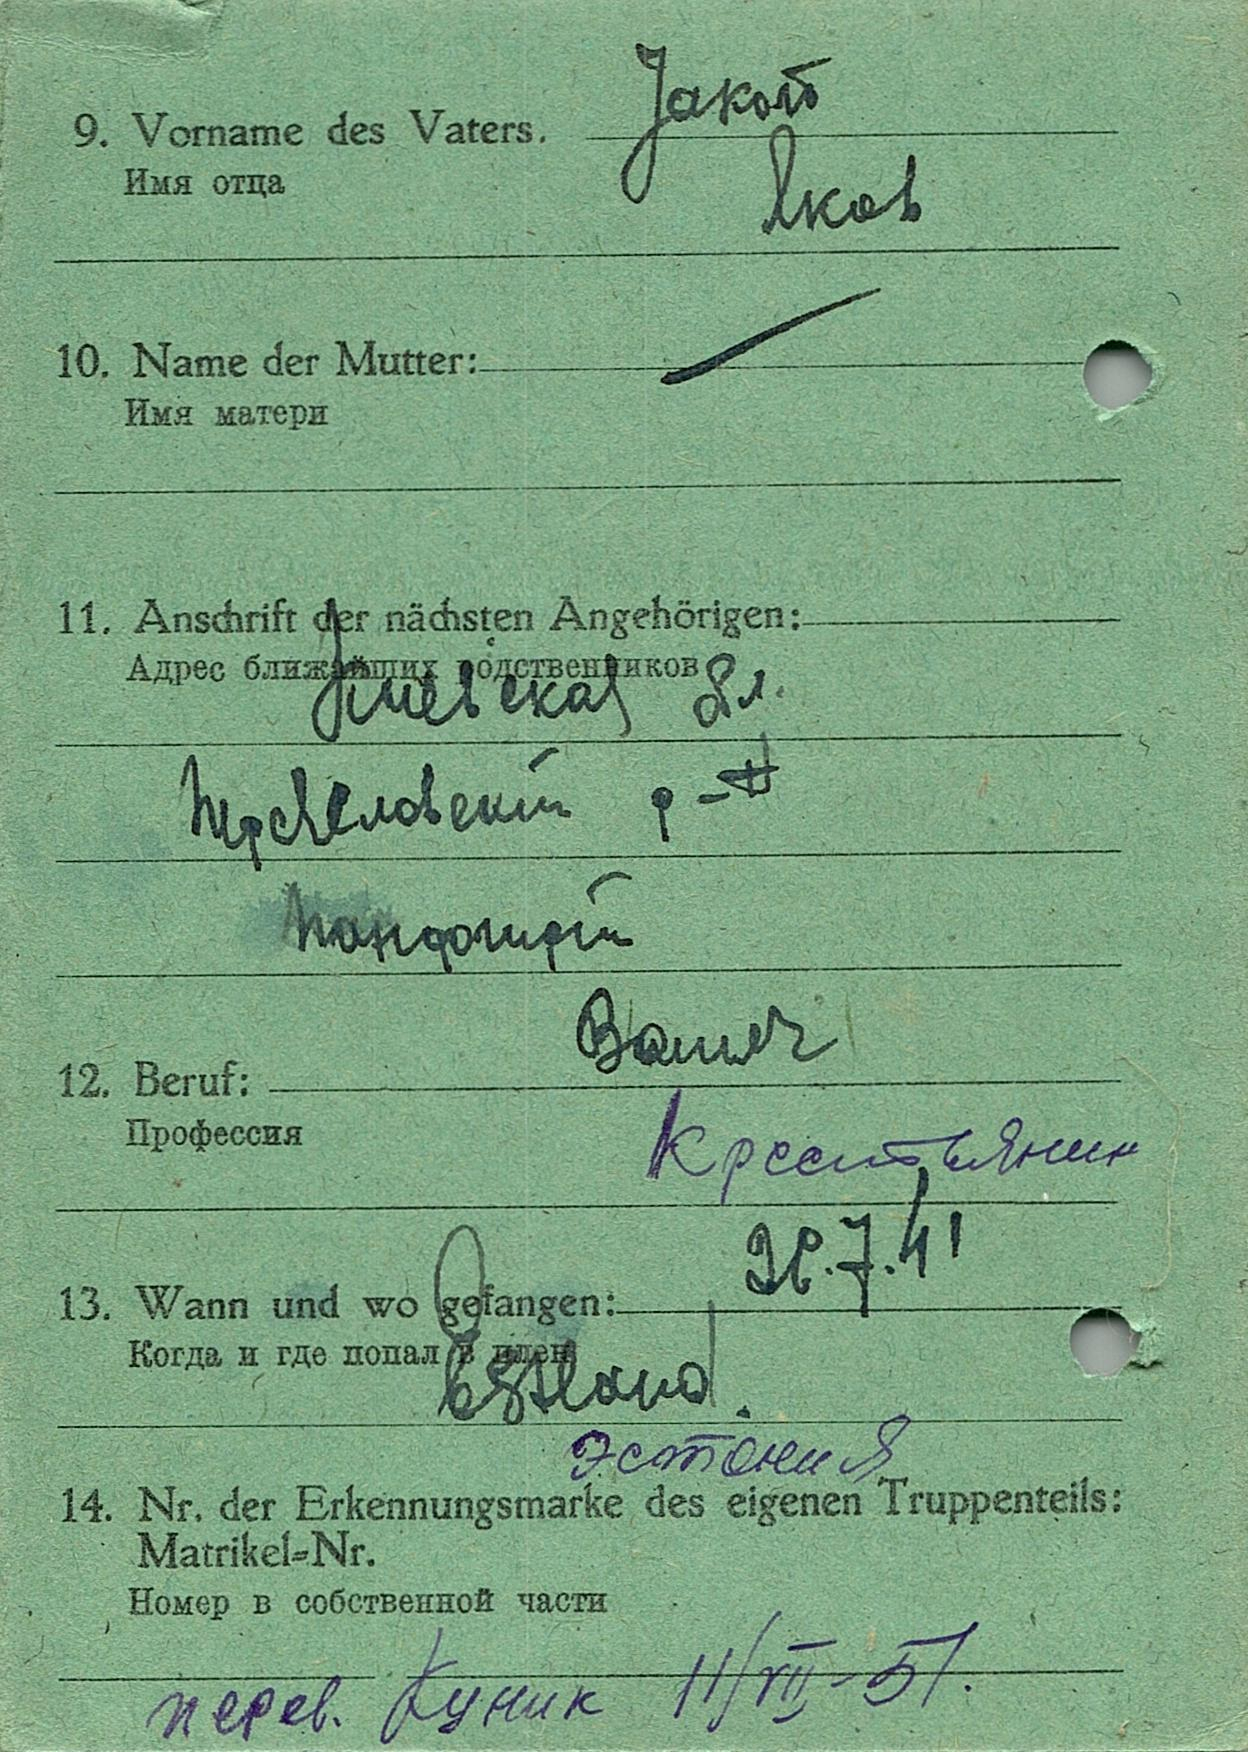 9. Vorname des Vaters. Jakob
Имя отца Яков
10. Name der Mutter:
Имя матери
11. Anschrift der nächsten Angehörigen:
Адрес ближайших родственников
Киевская
р-н
12. Beruf:
Профессия Крестьянин
13. Wann und wo gefangen: 28.7.41
Когда и где попал в плен Estland.
Эстония
14. Nr. der Erkennungsmarke des eigenen Truppenteils:
Matrikel=Nr.
Номер в собственной части
перев. Куник 11/VII-51.